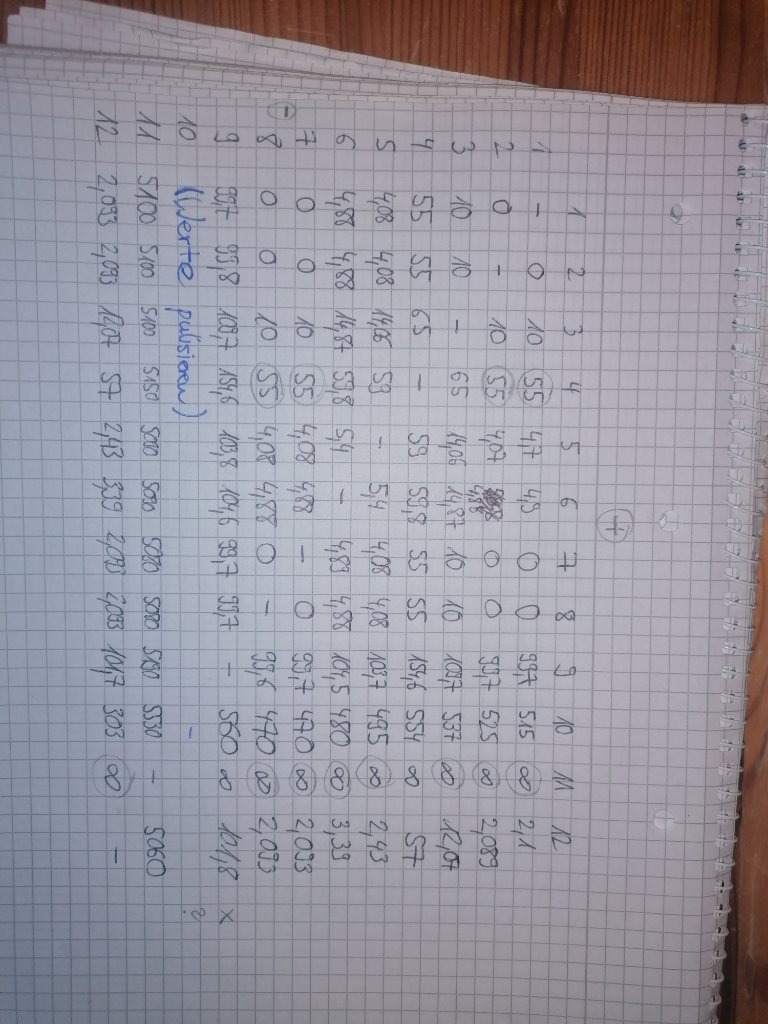 +
1 2 3 4 5 6 7 8 9 10 11 12
1 - 0 10 55 4,7 4,9 0 0 99,7 515 ∞ 2,1
2 0 - 10 55 4,07 4,88 0 0 99,7 525 ∞ 2,089
3 10 10 - 65 14,06 14,87 10 10 109,7 537 ∞ 12,07
4 55 55 65 - 59 59,8 55 55 154,6 554 ∞ 57
5 4,08 4,08 14,06 59 - 5,4 4,08 4,08 103,7 495 ∞ 2,43
6 4,88 4,88 14,87 59,8 5,4 - 4,89 4,88 104,5 480 ∞ 3,39
- 7 0 0 10 55 4,08 4,88 - 0 99,7 470 ∞ 2,093
8 0 0 10 55 4,08 4,88 0 - 99,6 470 ∞ 2,093
9 99,7 99,8 109,7 154,6 103,8 104,6 99,7 99,7 - 560 ∞ 101,8 x
10 (Werte pulsieren) - ?
11 5100 5100 5100 5150 5080 5080 5080 5150 5530 - 5060
12 2,093 2,093 12,07 57 2,43 3,39 2,093 2,093 101,7 303 ∞ -